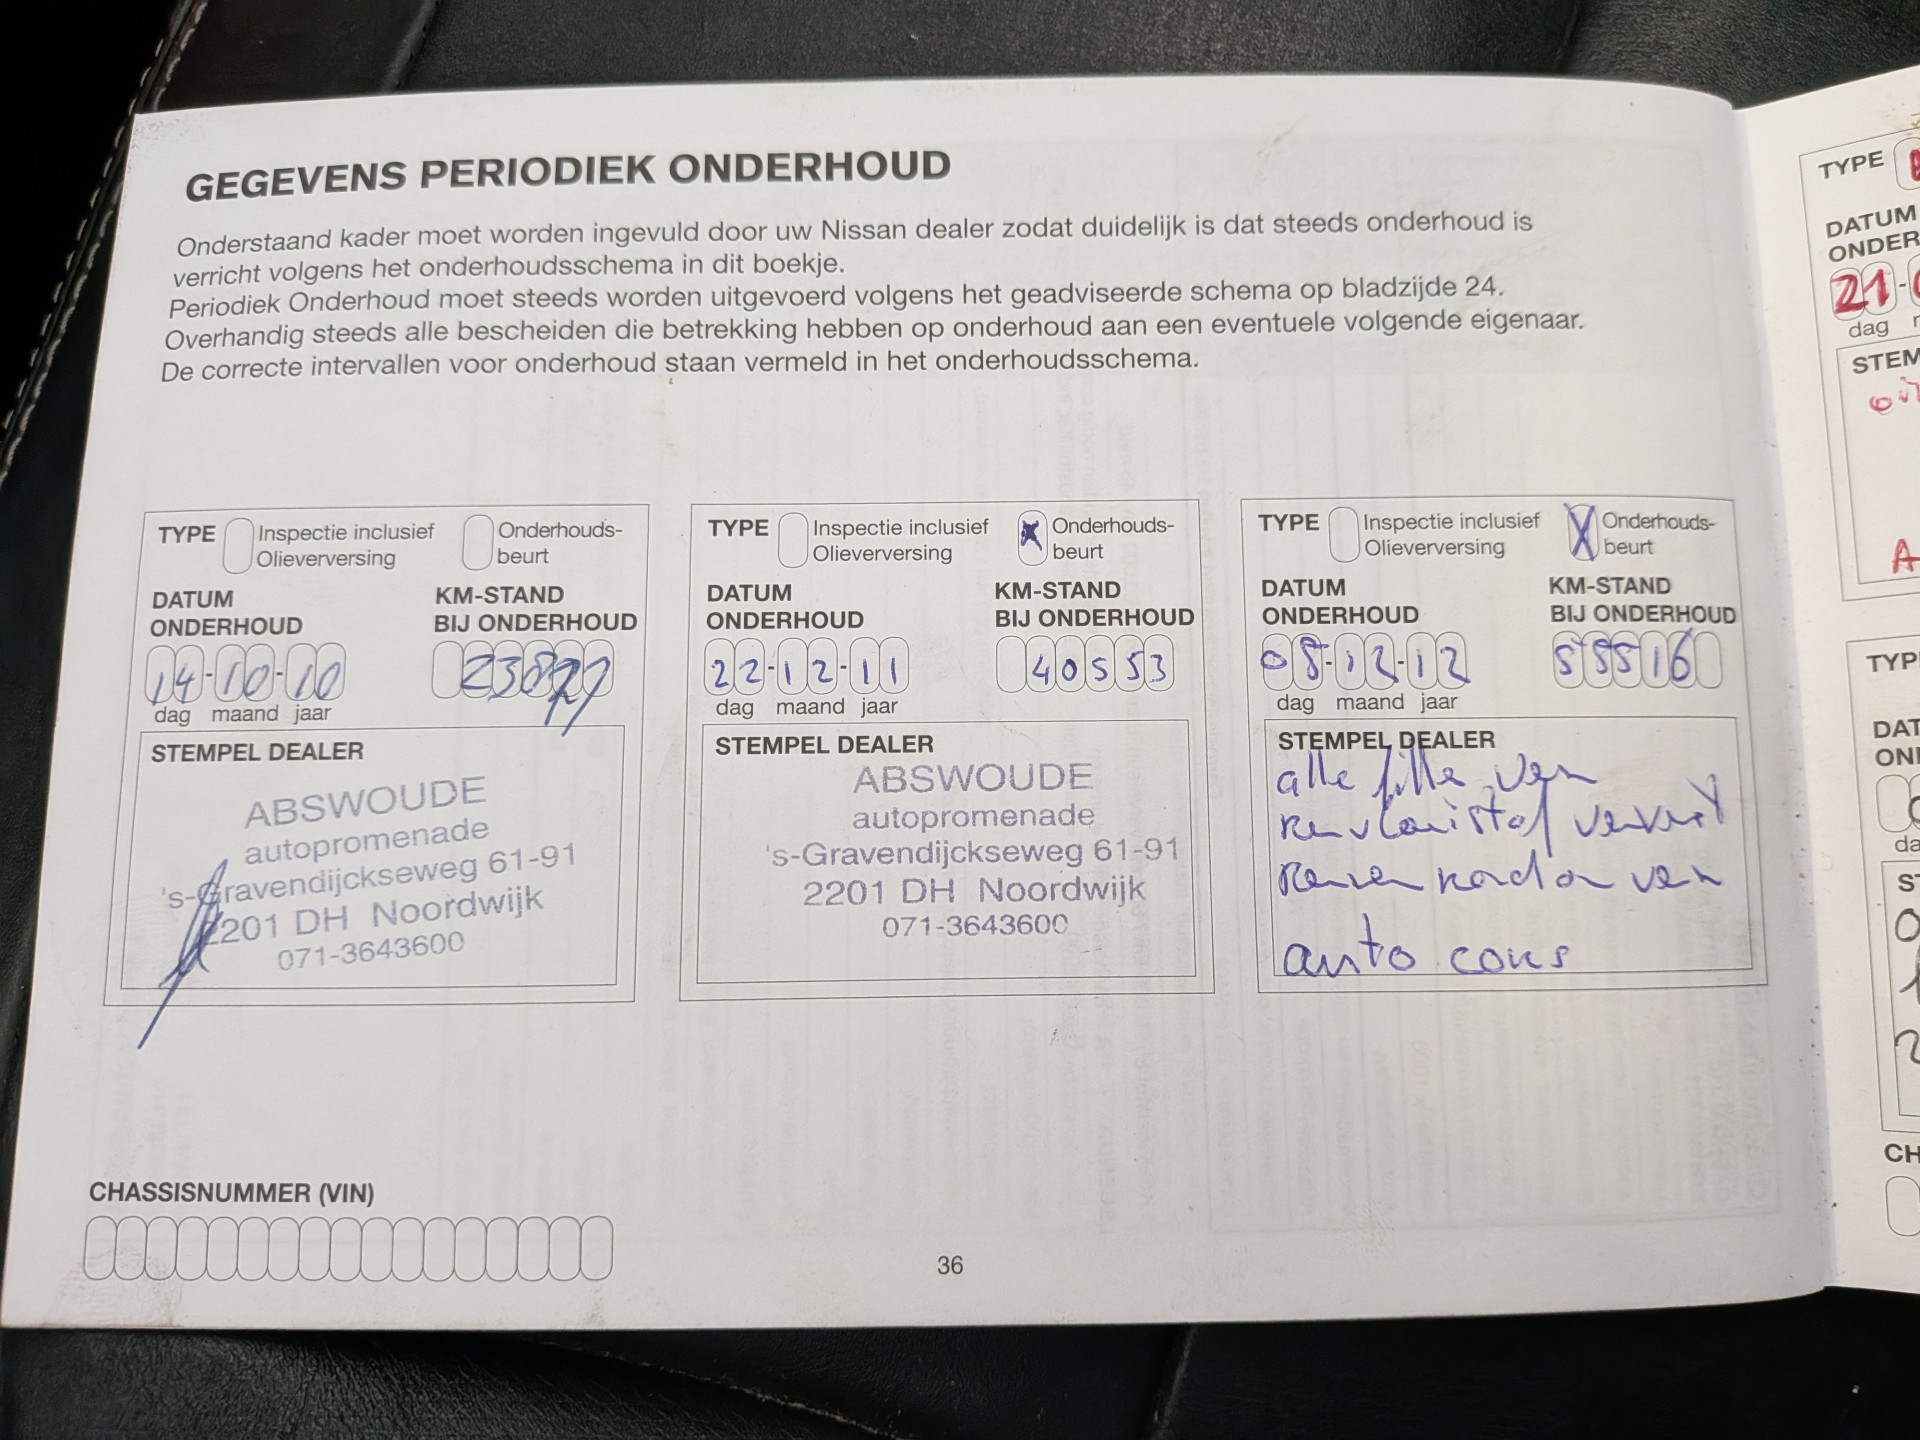 GEGEVENS PERIODIEK ONDERHOUD
Onderstaand kader moet worden ingevuld door uw Nissan dealer zodat duidelijk is dat steeds onderhoud is
verricht volgens het onderhoudsschema in dit boekje.
Periodiek Onderhoud moet steeds worden uitgevoerd volgens het geadviseerde schema op bladzijde 24.
Overhandig steeds alle bescheiden die betrekking hebben op onderhoud aan een eventuele volgende eigenaar.
De correcte intervallen voor onderhoud staan vermeld in het onderhoudsschema.
TYPE Inspectie inclusief Onderhouds-
Olieverversing beurt
DATUM KM-STAND
ONDERHOUD BIJ ONDERHOUD
14-10-10
dag maand jaar
STEMPEL DEALER
ABSWOUDE
autopromenade
's-Gravendijckseweg 61-91
2201 DH Noordwijk
071-3643600
TYPE Inspectie inclusief X Onderhouds-
Olieverversing beurt
DATUM KM-STAND
ONDERHOUD BIJ ONDERHOUD
22-12-11 40553
dag maand jaar
STEMPEL DEALER
ABSWOUDE
autopromenade
's-Gravendijckseweg 61-91
2201 DH Noordwijk
071-3643600
TYPE Inspectie inclusief X Onderhouds-
Olieverversing beurt
DATUM KM-STAND
ONDERHOUD BIJ ONDERHOUD
-12-12 55516
dag maand jaar
STEMPEL DEALER
alle
auto
CHASSISNUMMER (VIN)
36
TYPE
DATUM
21-
dag